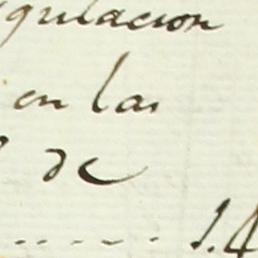 gulacion
en las
de
..... 1.4